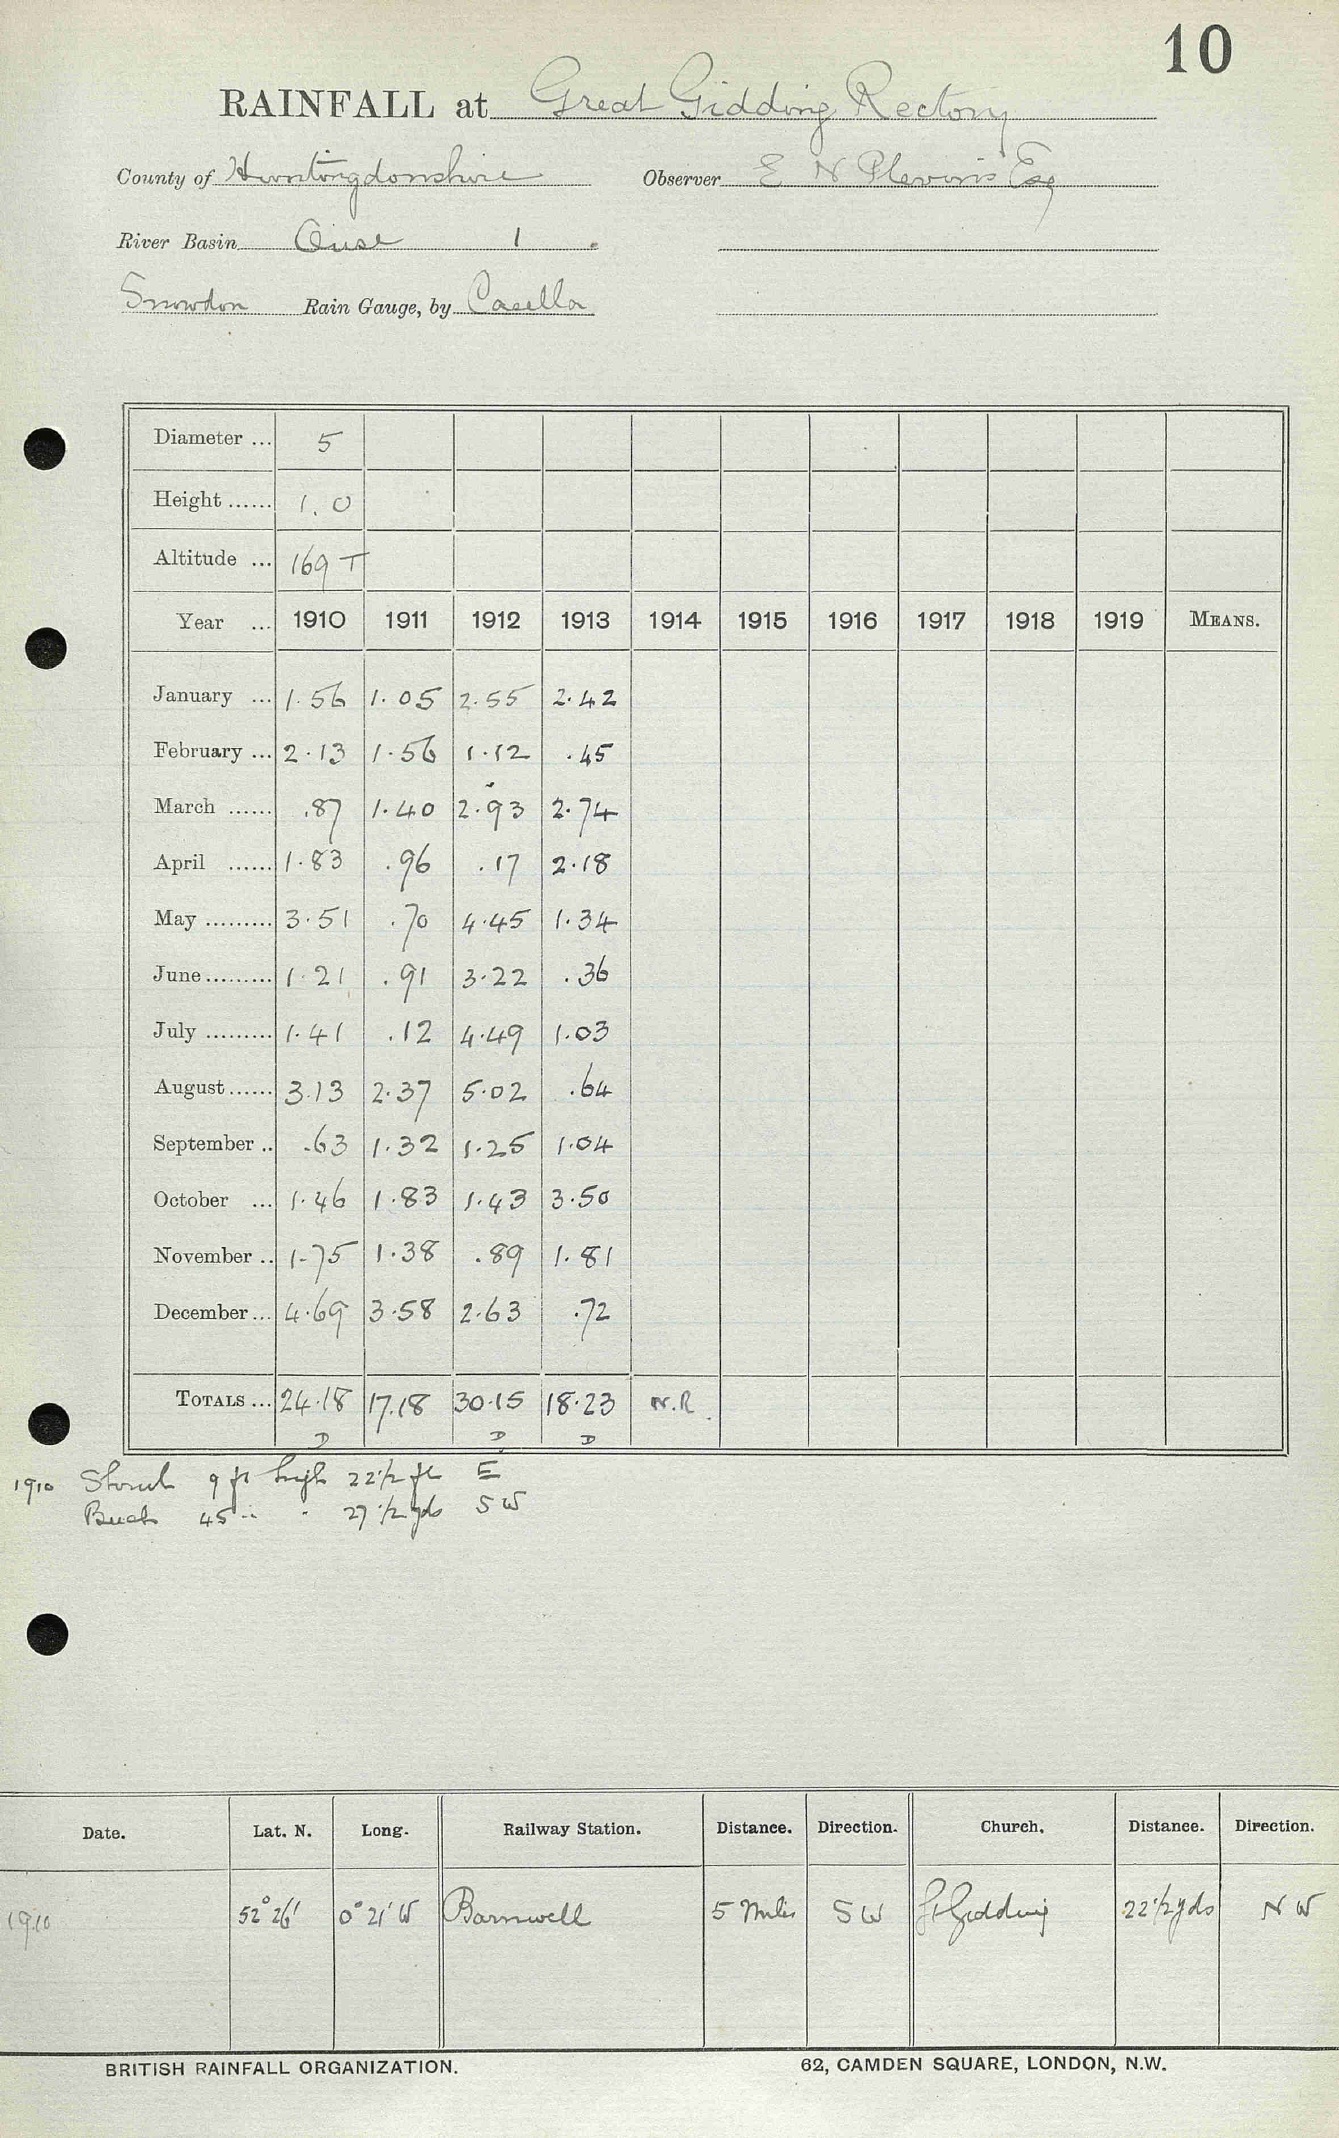 10
RAINFALL at Great Gidding Rectory
County of Huntingdonshire Observer E N Plevins Esq
River Basin Ouse 1
Snowdon Rain Gauge, by Casella
Diameter ... 5
Height ...... 1.0
Altitude ... 169 T
Year ... 1910 1911 1912 1913 1914 1915 1916 1917 1918 1919 MEANS.
January ... 1.56 1.05 2.55 2.42
February ... 2.13 1.56 1.12 .45
March ...... .87 1.40 2.93 2.74
April ...... 1.83 .96 .17 2.18
May ......... 3.51 .70 4.45 1.34
June ......... 1.21 .91 3.22 .36
July ......... 1.41 .12 4.49 1.03
August ...... 3.13 2.37 5.02 .64
September .. .63 1.32 1.25 1.04
October ... 1.46 1.83 1.43 3.50
November .. 1.75 1.38 .89 1.81
December ... 4.69 3.58 2.63 .72
TOTALS ... 24.18 17.18 30.15 18.23 N.R.
D D D
1910 Shrub 9 ft high 22 1/2 ft E
45 " " 27 1/2 yds SW
Date. Lat. N. Long. Railway Station. Distance. Direction. Church. Distance. Direction.
1910 52° 26' 0° 21' W Barnwell 5 Miles SW Gt Gidding 22 1/2 yds NW
BRITISH RAINFALL ORGANIZATION. 62, CAMDEN SQUARE, LONDON, N.W.